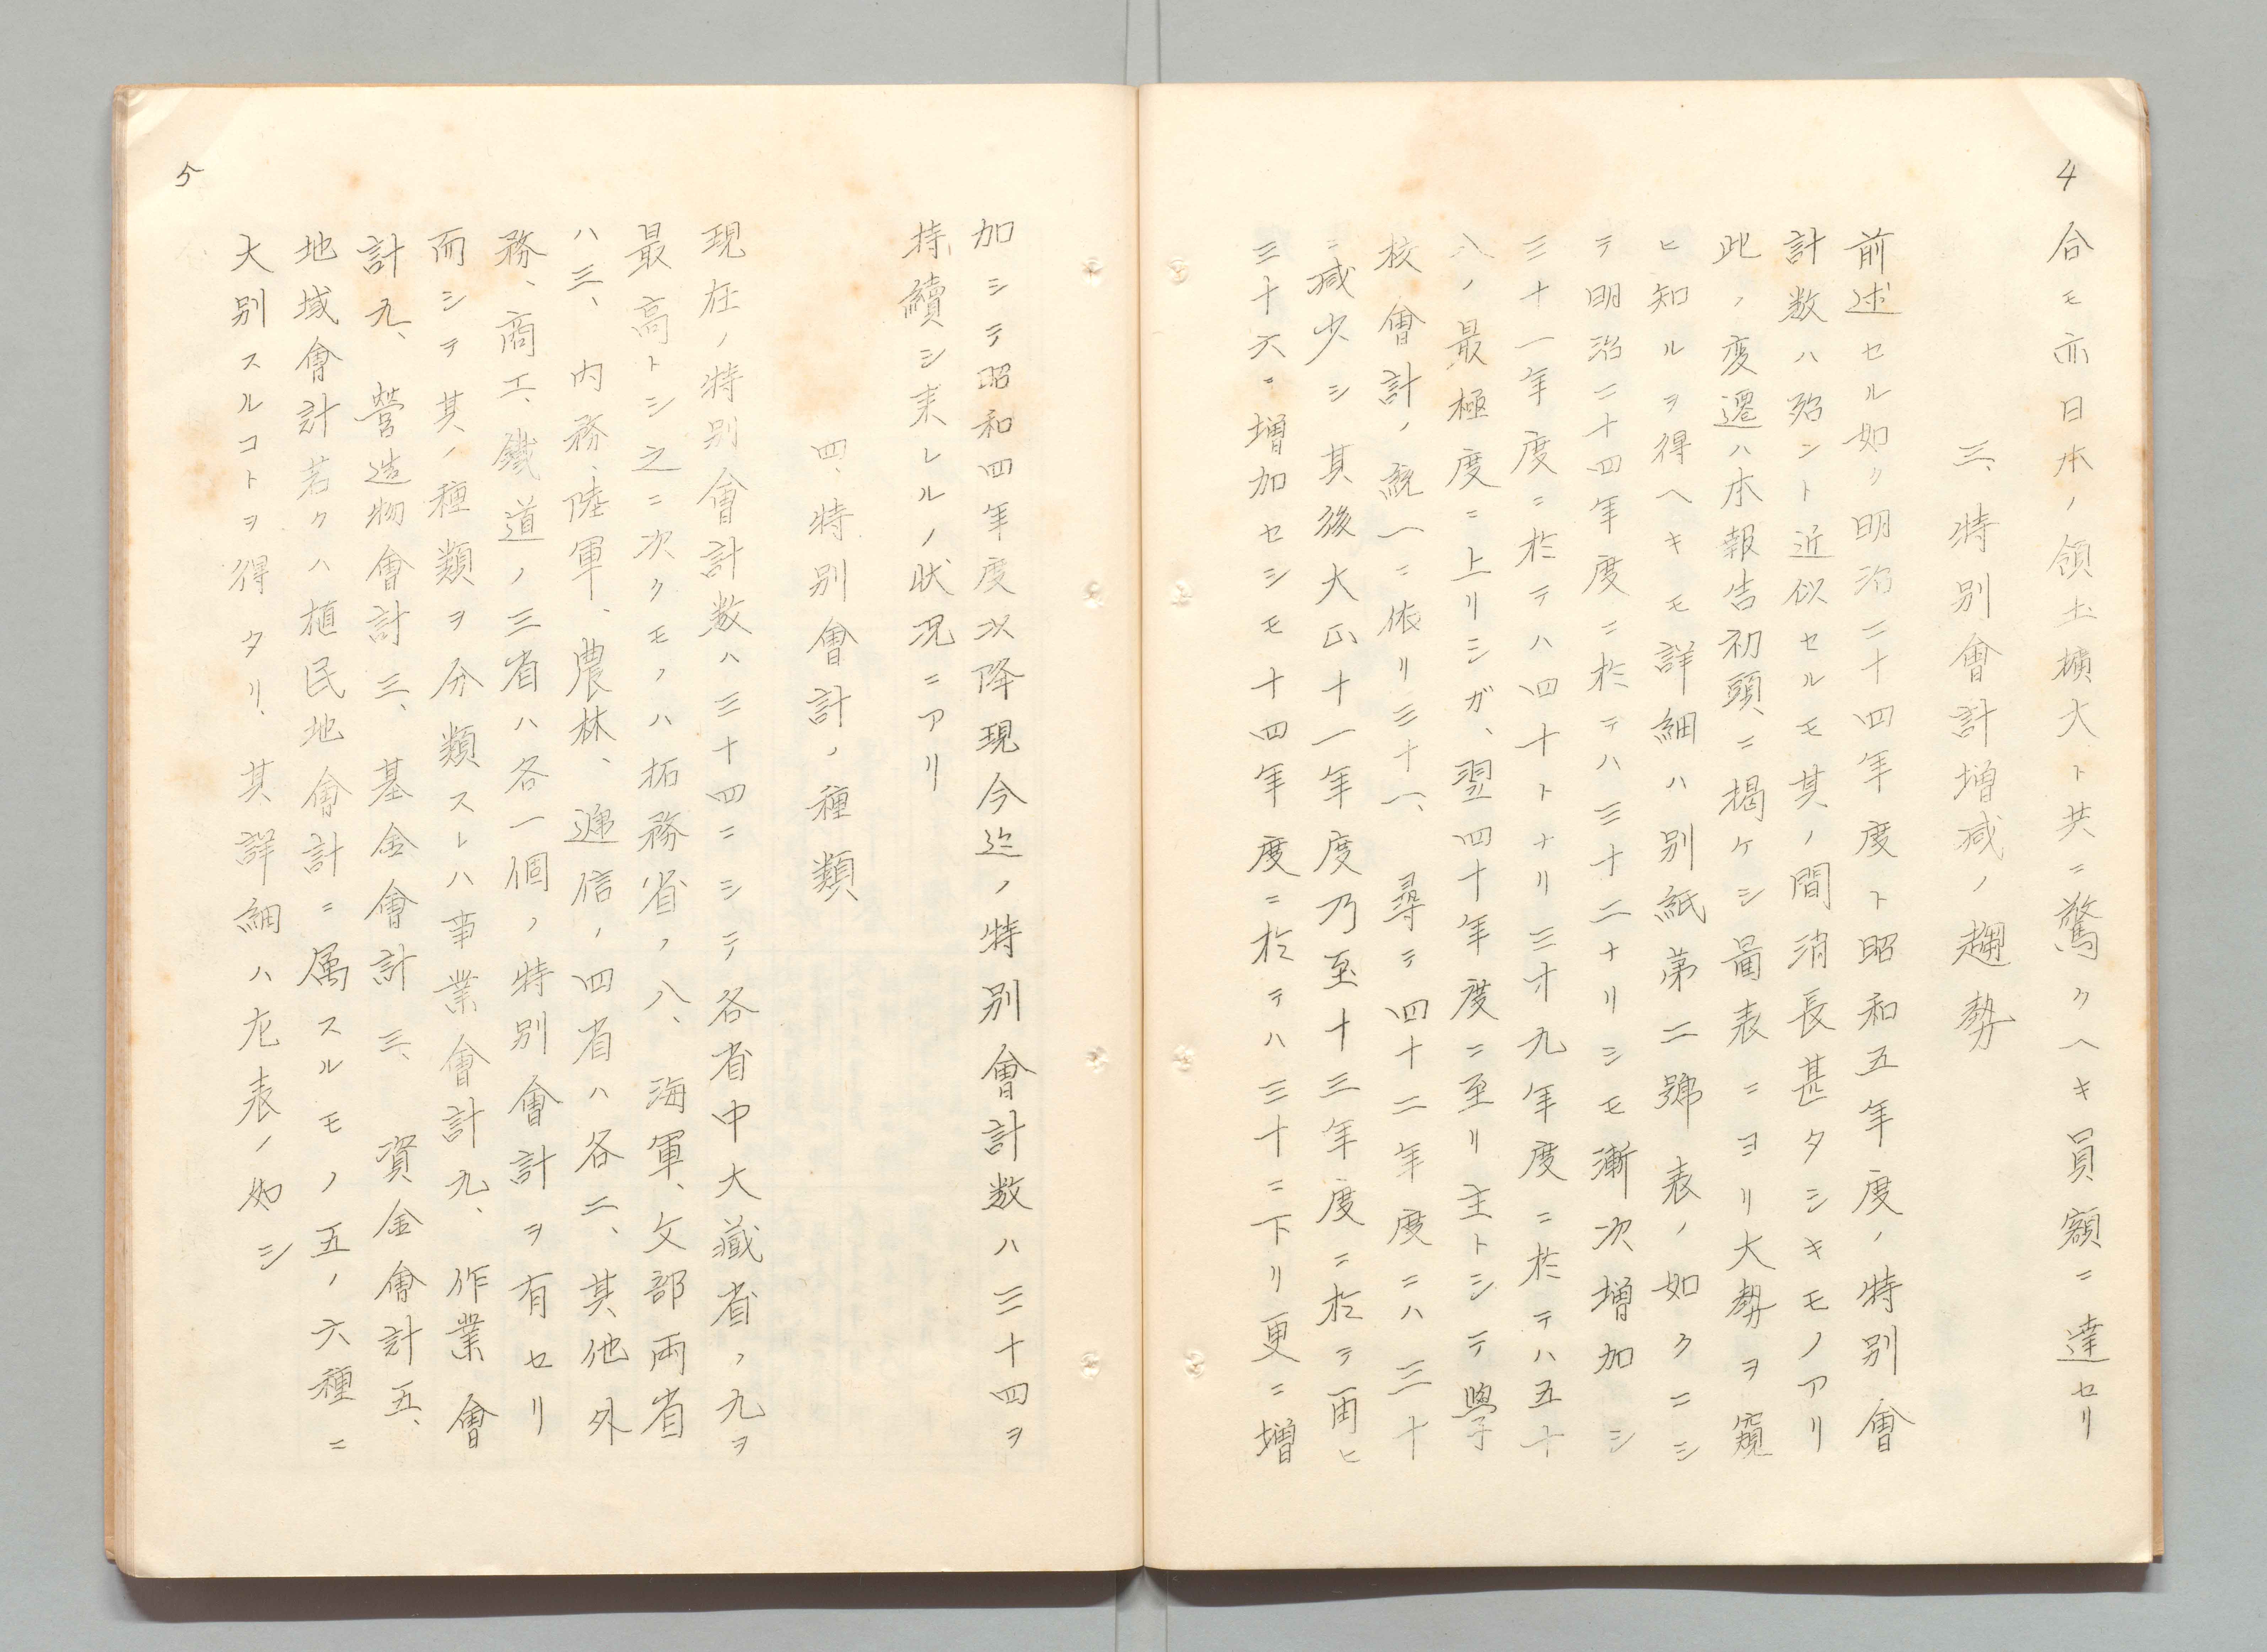 4
合モ亦日本ノ領土擴大ト共ニ驚クヘキ員額ニ達セリ
三、特別會計増減ノ趨勢
前述セル如ク明治二十四年度ト昭和五年度ノ特別會
計数ハ殆ント近似セルモ其ノ間消長甚タシキモノアリ
此ノ変遷ハ本報告初頭ニ掲ケシ圖表ニヨリ大勢ヲ窺
ヒ知ルヲ得ヘキモ詳細ハ別紙第二號表ノ如クニシ
テ明治二十四年度ニ於テハ三十二ナリシモ漸次増加シ
三十一年度ニ於テハ四十トナリ三十九年度ニ於テハ五十
八ノ最極度ニ上リシガ、翌四十年度ニ至リ主トシテ學
校會計ノ統一ニ依リ三十一、尋テ四十二年度ニハ三十
ニ減少シ其後大正十一年度乃至十三年度ニ於テ再ヒ
三十六ニ増加セシモ十四年度ニ於テハ三十ニ下リ更ニ増
加シテ昭和四年度以降現今迄ノ特別會計数ハ三十四ヲ
持續シ来レルノ状況ニアリ
四、特別會計ノ種類
現在ノ特別會計数ハ三十四ニシテ各省中大藏省ノ九ヲ
最高トシ之ニ次クモノハ拓務省ノ八、海軍、文部両省
ハ三、内務、陸軍、農林、遞信ノ四省ハ各二、其他外
務、商工、鐵道ノ三省ハ各一個ノ特別會計ヲ有セリ
而シテ其ノ種類ヲ分類スレハ事業會計九、作業會
計九、營造物會計三、基金會計三、資金會計五、
地域會計若クハ植民地會計ニ属スルモノ五ノ六種ニ
大別スルコトヲ得タリ、其詳細ハ左表ノ如シ
5